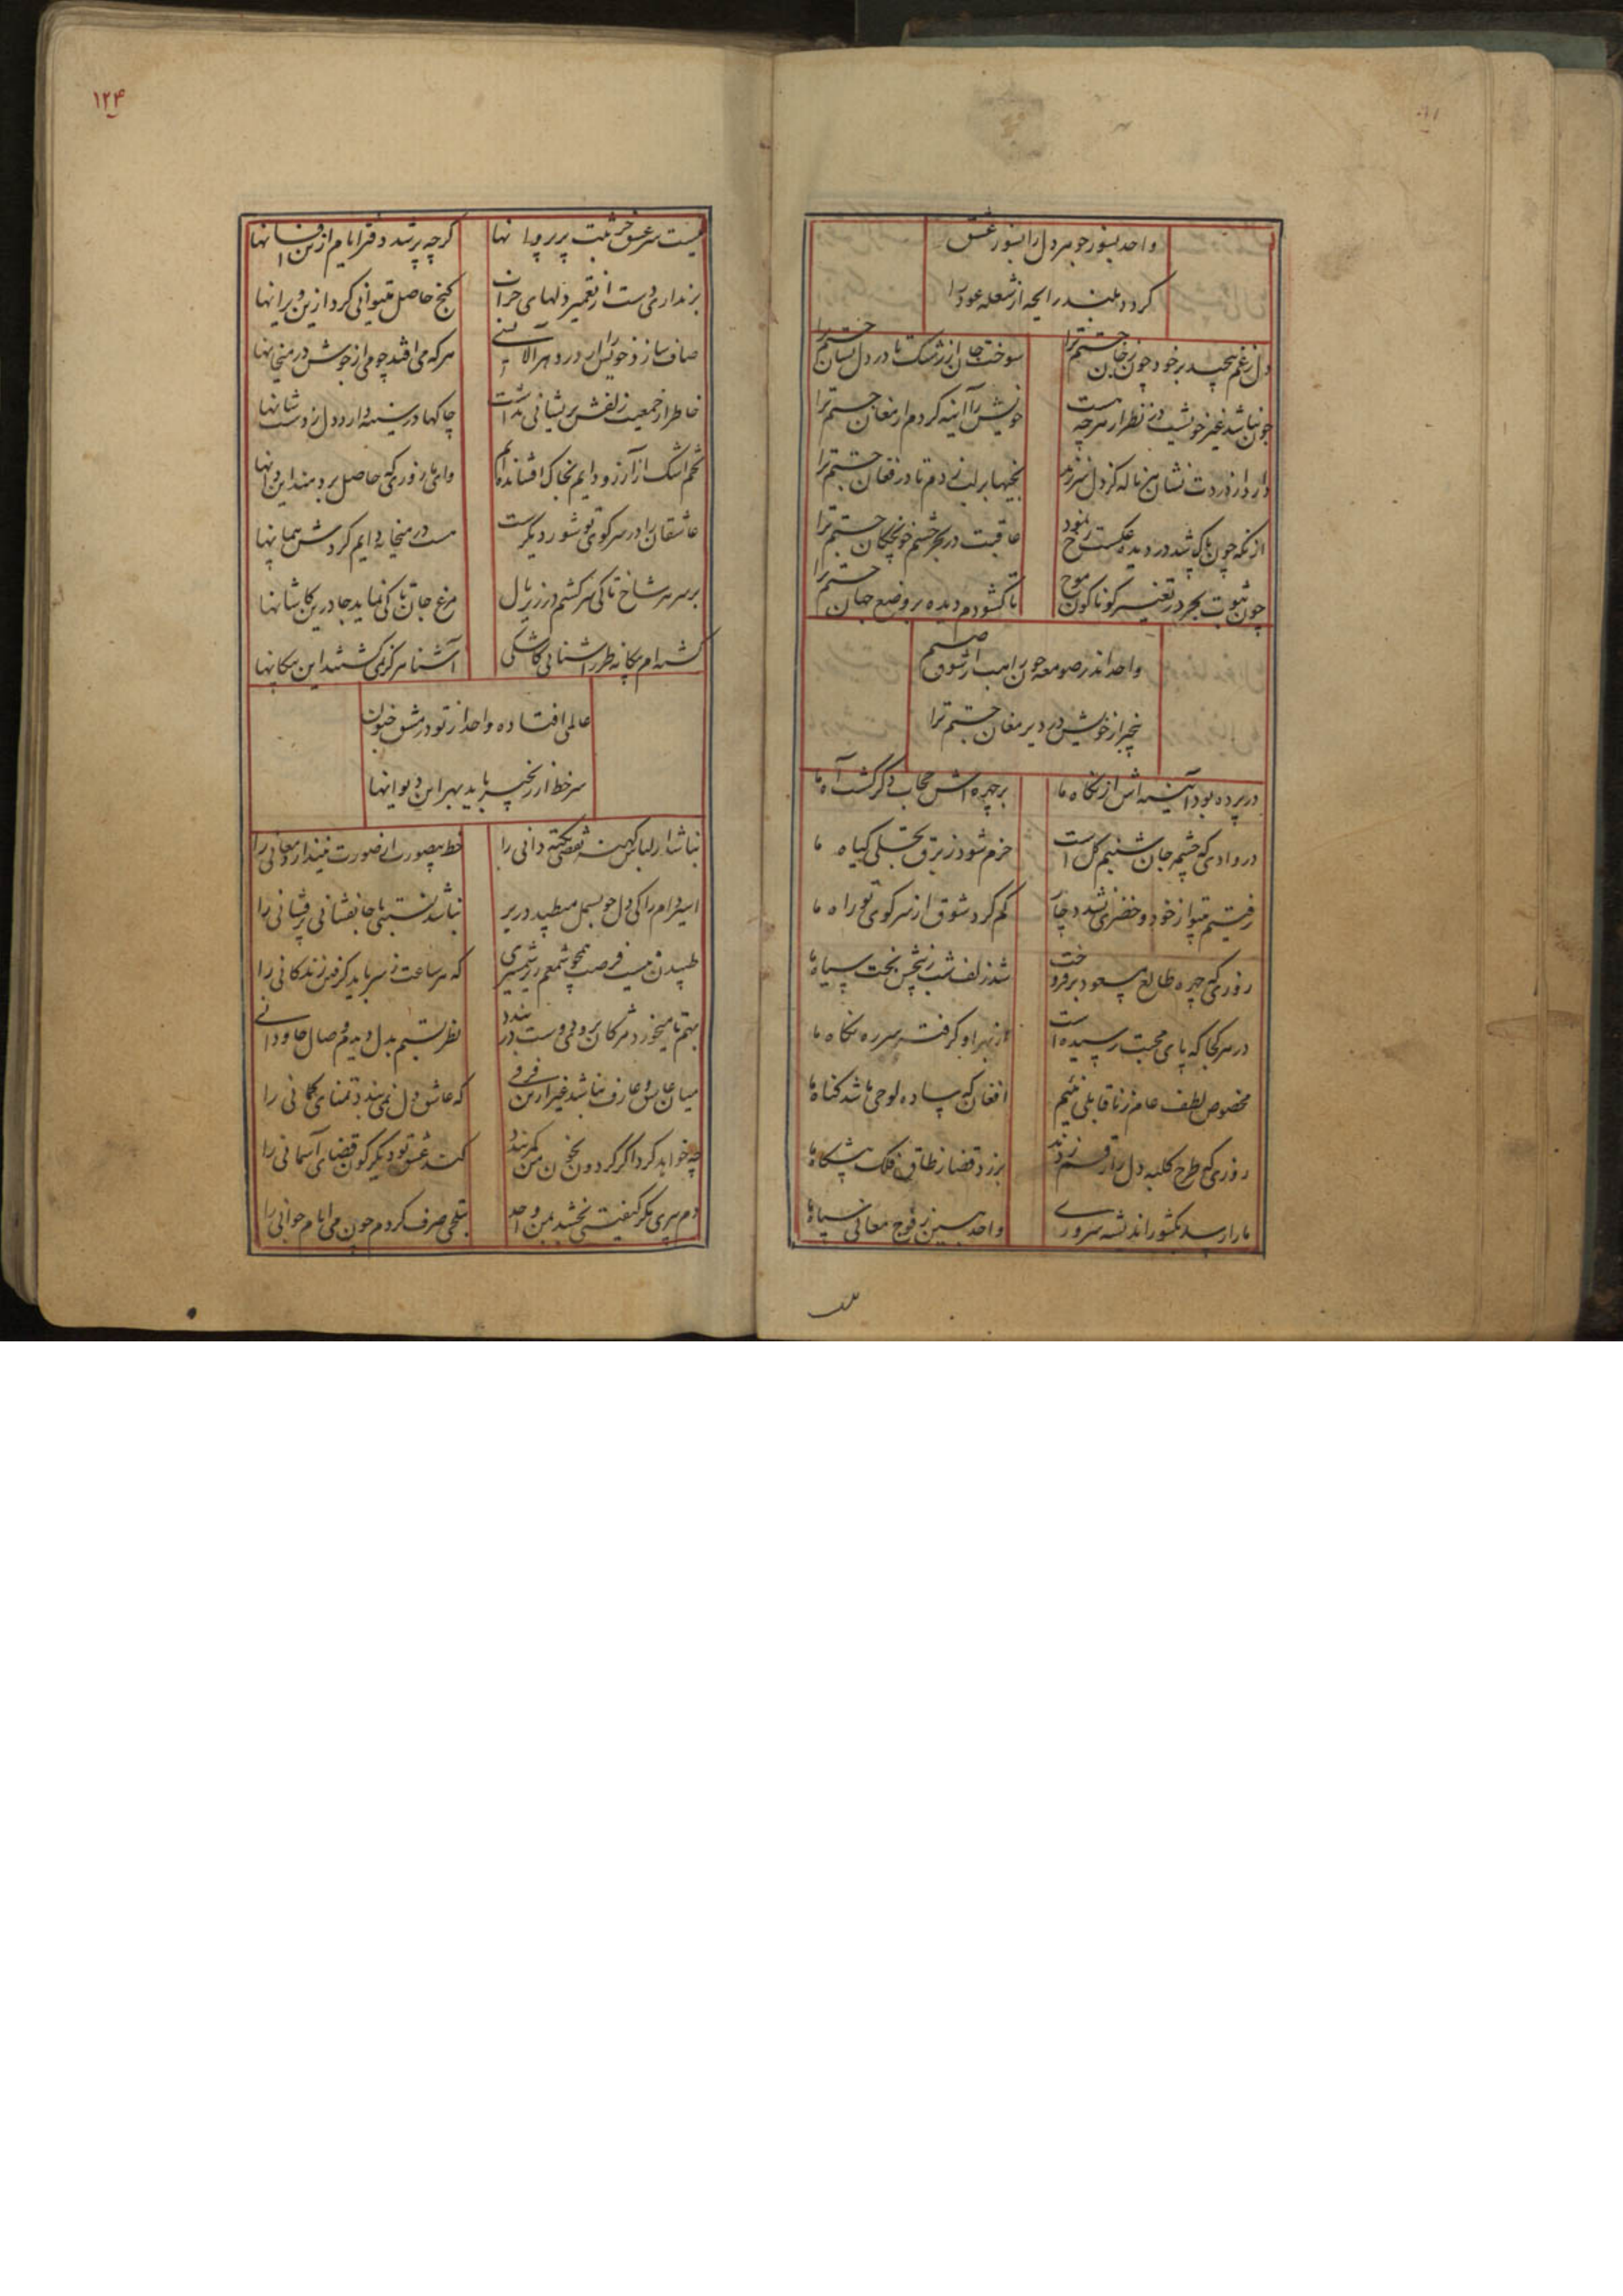 واحد بسوز جوهر دل را بسوز عشق
کردد بلند رایحه از شعله عود را
دل ز غم پیچید بر خود چون ز جان جستم ترا
سوخت جان از رشک تا در دل نسان جستم ترا
چون نباشد غیر خویشت در نظر از هرچه هست
خویش را آیینه کردم ارمغان جستم ترا
دارد از دردت نشان هر ناله کز دل سرزند
بخیها بر لب زدم تا در فغان جستم ترا
از نکه چون پاک شد در دیده عکست رخ نمود
عاقبت در بحر چشم خونچکان جستم ترا
چون ثبوت بحر در تغییر کوناکون موج
تا کشودم دیده بر وضع جهان جستم ترا
واحد اندر صومعه چون راهب از شوق صنم
بیخبر از خویش در دیر مغان جستم ترا
در پرده بود آینه اش از نکاه ما
بر چهره اش حجاب دکر کشت آه ما
در وادی که چشمه جان شبنم کل است
خرم شود ز برق تجلی کیاه ما
رفتیم بیتو از خود و خضری نشد دچار
کم کرد شوق از سر کوی تو راه ما
روزی که چهره طالع مسعود بر فروخت
شد زلف شب ز نقش بخت سیاه ما
در هر کجا که پای محبت رسیده است
از بهر او کرفت سر ره نکاه ما
مخصوص لطف عام ز ناقابلی نئیم
افغان که ساده لوحی ما شد کناه ما
روزی که طرح کلبه دل را رقم زدند
برزد قضا ز طاق فلک پیشکاه ما
ما را رسد بکشور اندیشه سروری
واحد ببین ز فوج معانی سپاه ما
۱۲۴
نیست سر عشق جز ثبت پر پروانها
کرچه پر شد دفتر ایام ازین افسانها
بر نداری دست از تعمیر دلهای خراب
کنج حاصل میتوانی کرد ازین ویرانها
هر که می افتد چو می از جوش در میخانها
خاطر از جمعیت زلفش پریشانی نداشت
چاکها در سینه دارد دل ز دست شانها
تخم اشک از آرزو دایم بخاک افشانده ام
وای تا روزی که حاصل بر دمد این دانها
عاشقان را در سر کوی تو شور دیکر است
مست در میخانه دایم کردش پیمانها
بر سر هر شاخ تا کی سر کشم در زیر بال
مرغ جان تا کی نماید جا درین کاشانها
کشته ام بیکانه طرز آشنائی کاشکی
آشنا هرکز نمی کشتند این بیکانها
عالمی افتاده واحد از تو در مشق جنون
سر خط از زنجیر باید بهر این دیوانها
نباشد از لباس کهنه نقصی نکته دانی را
خط بیصورت از صورت نیندازد معانی را
اسیر دام را کی دل چو بسمل میطپد در بر
نباشد نسبتی با جانفشانی پرفشانی را
طپیدن نیست فرصت همچو شمعم زیر شمشیری
که هر ساعت ز سر باید کرفتن زندکانی را
بهم تا میخورد مژکان بروی دوست در بندد
نظر بستیم بدل دیدیم وصال جاودانی
میان عاشق و عارف نباشد غیر ازین فرقی
که عاشق دل نمی بندد تمنای کمانی را
چه خواهد کرد اکر کردون بخون من کمر بندد
کند عشق تو دیکر کون قضای آسمانی را
دم پیری مکر کیفیتی بخشد بمن واحد
بتلخی صرف کردم چون می ایام جوانی را